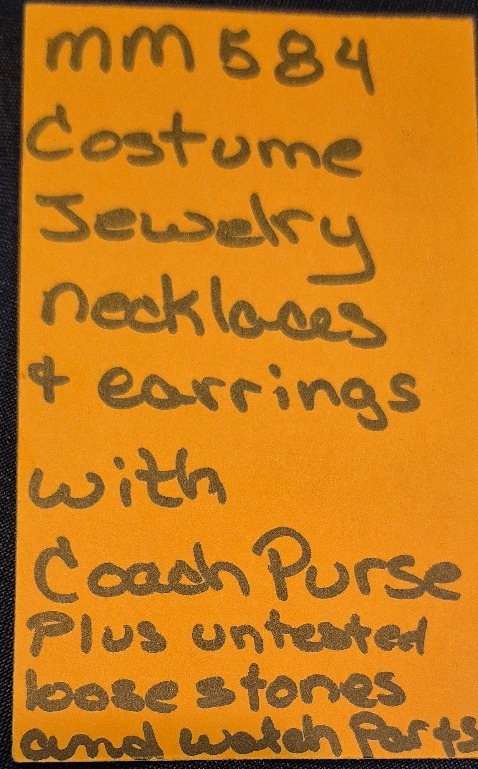 mm 584
Costume
Jewelry
necklaces
+ earrings
with
Coach Purse
Plus untested
loose stones
and watch Parts